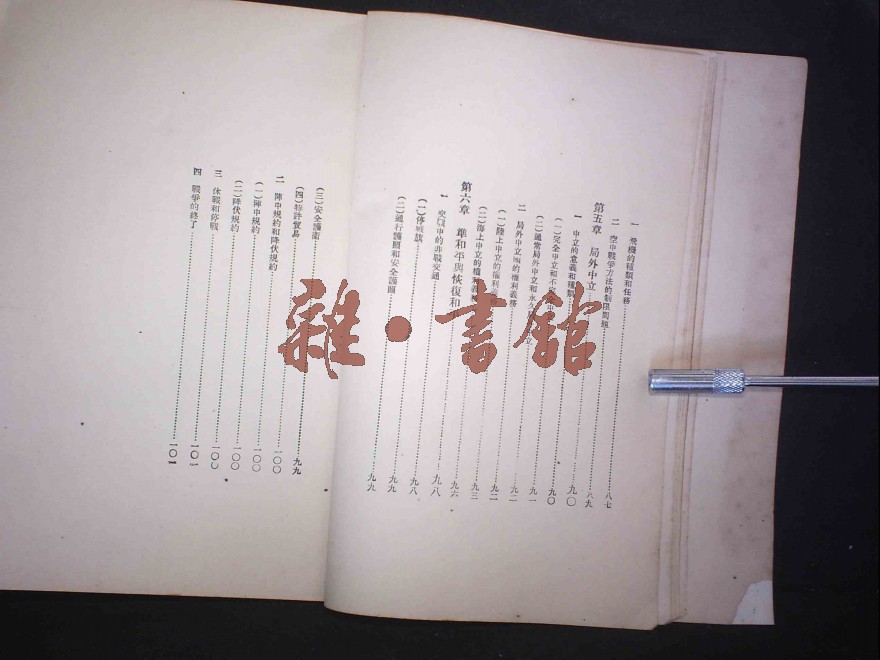 一 飛機的種類和任務……八七
二 空中戰爭方法的制限問題……八九
第五章 局外中立……九〇
一 中立的意義和種類……九〇
(一)完全中立和不完全中立……九〇
(二)通常局外中立和永久局外中立……九一
二 局外中立國的權利義務……九二
(一)陸上中立的權利義務……九二
(二)海上中立的權利義務……九三
第六章 準和平與恢復和平……九六
一 交戰中的非戰交通……九八
(一)停戰旗……九八
(二)通行護照和安全護照……九九
(三)安全護衛……九九
(四)特許貿易……九九
二 陣中規約和降伏規約……一〇〇
(一)陣中規約……一〇〇
(二)降伏規約……一〇〇
三 休戰和停戰……一〇〇
四 戰爭的終了……一〇一
一〇一
雜·書館